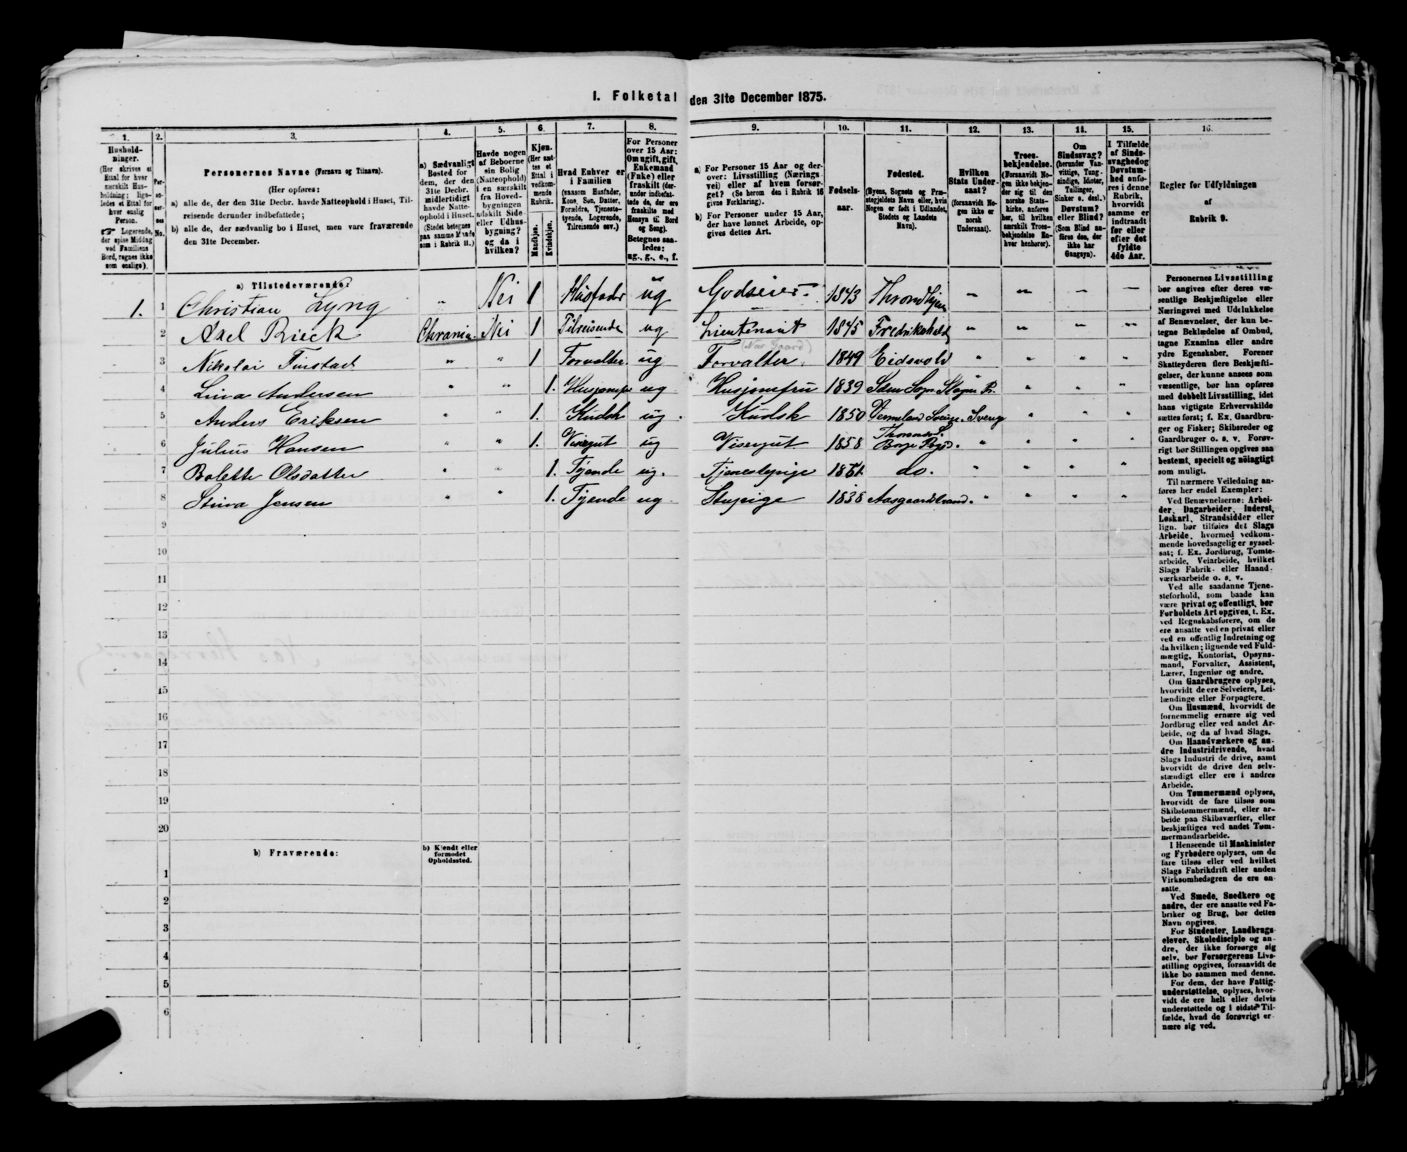 I. Folketal den 31te December 1875.
1. 2. 3. 4. 5. 6. 7. 8. 9. 10. 11. 12. 13. 14. 15. 16.
Hushold-
ninger.
(Her skrives et
Ettal for hver
særskilt Hus-
holdning; lige-
ledes et Ettal for
hver enslig
Person.
☞ Logerende,
der spise Middag
ved Familiens
Bord, regnes ikke
som enslige).
Per-
so-
ner-
nes
No.
Personernes Navne (Fornavn og Tilnavn).
(Her opføres:
a) alle de, der den 31te Decbr. havde Natteophold i Huset, Til-
reisende derunder indbefattede;
b) alle de, der sædvanlig bo i Huset, men vare fraværende
den 31te December.
a) Sædvanligt
Bosted for
dem, der den
31te Decbr.
midlertidigt
havde Natte-
ophold i Huset.
(Stedet betegnes
paa samme Maade
som i Rubrik 11.)
Havde nogen
af Beboerne
sin Bolig
(Natteophold)
i en særskilt
fra Hoved-
bygningen
adskilt Side-
eller Udhus-
bygning?
og da i
hvilken?
Kjøn.
(Her sæt-
tes et
Ettal i
vedkom-
mende
Rubrik.
Mandkjøn.
Kvindekjøn.
Hvad Enhver er
i Familien
(saasom Husfader,
Kone, Søn, Datter,
Forældre, Tjeneste-
tyende, Logerende,
Tilreisende osv.)
For Personer
over 15 Aar:
Om ugift, gift,
Enkemand
(Enke) eller
fraskilt (der-
under indbefat-
tede de, der ere
fraskilte med
Hensyn til Bord
og Seng).
Betegnes saa-
ledes:
ug., g., e., f.
a) For Personer 15 Aar og der-
over: Livsstilling (Nærings-
vei) eller af hvem forsør-
get? (Se herom den i Rubrik 16
givne Forklaring).
b) For Personer under 15 Aar,
der have lønnet Arbeide, op-
gives dettes Art.
Fødsels-
aar.
Fødested.
(Byens, Sognets og Præ-
stegjeldets Navn eller, hvis
Nogen er født i Udlandet,
Stedets og Landets
Navn).
Hvilken
Stats Under-
saat?
(forsaavidt No-
gen ikke er
norsk
Undersaat).
Troes-
bekjendelse.
(Forsaavidt No-
gen ikke bekjen-
der sig til den
norske Stats-
kirke, anføres
her, til hvilken
særskilt Troes-
bekjendelse En-
hver henhører).
Om
Sindssvag?
(herunder Van-
vittige, Tung-
sindige, Idioter,
Tullinger,
Sinker o. desl.)
Døvstum?
eller Blind?
(Som Blind an-
føres den, der
ikke har
Gangsyn).
I Tilfælde
af Sinds-
svaghed og
Døvstum-
hed anfø-
res i denne
Rubrik,
hvorvidt
samme er
indtraadt
før eller
efter det
fyldte
4de Aar.
Regler for Udfyldningen
af
Rubrik 9.
a) Tilstedeværende:
1. 1 Christian Lyng „ Nei 1 Husfader ug Godseier. 1843 Throndhjem „ „ „ „
2 Axel Rieck Chrania Nei 1 Tilreisende ug Lieutenant 1845 Fredrikshald „ „ „ „
3 Nikolai Finstad „ „ 1 Forvalter ug Forvalter 1849 Eidsvold „ „ „ „
4 Lina Andersen „ „ 1. Husjomfr ug Husjomfru 1839 Slagen P. „ „ „
5 Anders Eriksen „ „ 1. Kudsk ug. Kudsk 1850 Vermeland Sverige. Sverig „ „ „
6 Julius Hansen „ „ 1. Visergut ug Visergut 1858 Borge Pgd. „ „ „ „
7 Bolette Olsdatter „ „ 1. Tyende ug. Tjenestepige do. „ „ „ „
8 Stina Jensen „ „ 1. Tyende ug. Stupige 1838 Aasgaardstrand. „ „ „ „
9
10
11
12
13
14
15
16
17
18
19
20
b) Fraværende:
b) Kjendt eller
formodet
Opholdssted.
1
2
3
4
5
6
Personernes Livsstilling
bør angives efter deres væ-
sentlige Beskjæftigelse eller
Næringsvei med Udelukkelse
af Benævnelser, der kun be-
tegne Beklædelse af Ombud,
tagne Examina eller andre
ydre Egenskaber. Forener
Skatteyderen flere Beskjæfti-
gelser, der kunne ansees som
væsentlige, bør han opføres
med dobbelt Livsstilling, idet
hans vigtigste Erhvervskilde
sættes først; f. Ex. Gaardbru-
ger og Fisker; Skibsreder og
Gaardbruger o. s. v. Forøv-
rigt bør Stillingen opgives saa
bestemt, specielt og nøiagtigt
som muligt.
Til nærmere Veiledning an-
føres her endel Exempler:
Ved Benævnelserne: Arbei-
der, Dagarbeider, Inderst,
Løskarl, Strandsidder eller
lign. bør tilføies det Slags
Arbeide, hvormed vedkom-
mende hovedsagelig er syssel-
sat; f. Ex. Jordbrug, Tomte-
arbeide, Veiarbeide, hvilket
Slags Fabrik- eller Haand-
værksarbeide o. s. v.
Ved alle saadanne Tjene-
steforhold, som baade kan
være privat og offentligt, bør
Forholdets Art opgives, t. Ex.
ved Regnskabsførere, om de
ere ansatte ved en privat eller
ved en offentlig Indretning og
da hvilken; lignende ved Fuld-
mægtig, Kontorist, Opsyns-
mand, Forvalter, Assistent,
Lærer, Ingeniør og andre.
Om Gaardbrugere oplyses,
hvorvidt de ere Selveiere, Lei-
lændinge eller Forpagtere.
Om Husmænd, hvorvidt de
fornemmelig ernære sig ved
Jordbrug eller ved andet Ar-
beide, og da af hvad Slags.
Om Haandværkere og an-
dre Industridrivende, hvad
Slags Industri de drive, samt
hvorvidt de drive den selv-
stændigt eller ere i andres
Arbeide.
Om Tømmermænd oplyses,
hvorvidt de fare tilsøs som
Skibstømmermænd, eller ar-
beide paa Skibsværfter, eller
beskjæftiges ved andet Tøm-
mermandsarbeide.
I Henseende til Maskinister
og Fyrbødere oplyses, om de
fare tilsøs eller ved hvilket
Slags Fabrikdrift eller anden
Virksomhedsgren de ere an-
satte.
Ved Smede, Snedkere og
andre, der ere ansatte ved Fa-
briker og Brug, bør dettes
Navn opgives.
For Studenter, Landbrugs-
elever, Skoledisciple og an-
dre, der ikke forsørge sig
selv, bør Forsørgerens Livs-
stilling opgives, forsaavidt de
ikke bo sammen med denne.
For dem, der have Fattig-
understøttelse, oplyses, hvor-
vidt de ere helt eller delvis
understøttede og i sidste Til-
fælde, hvad de forøvrigt er-
nære sig ved.